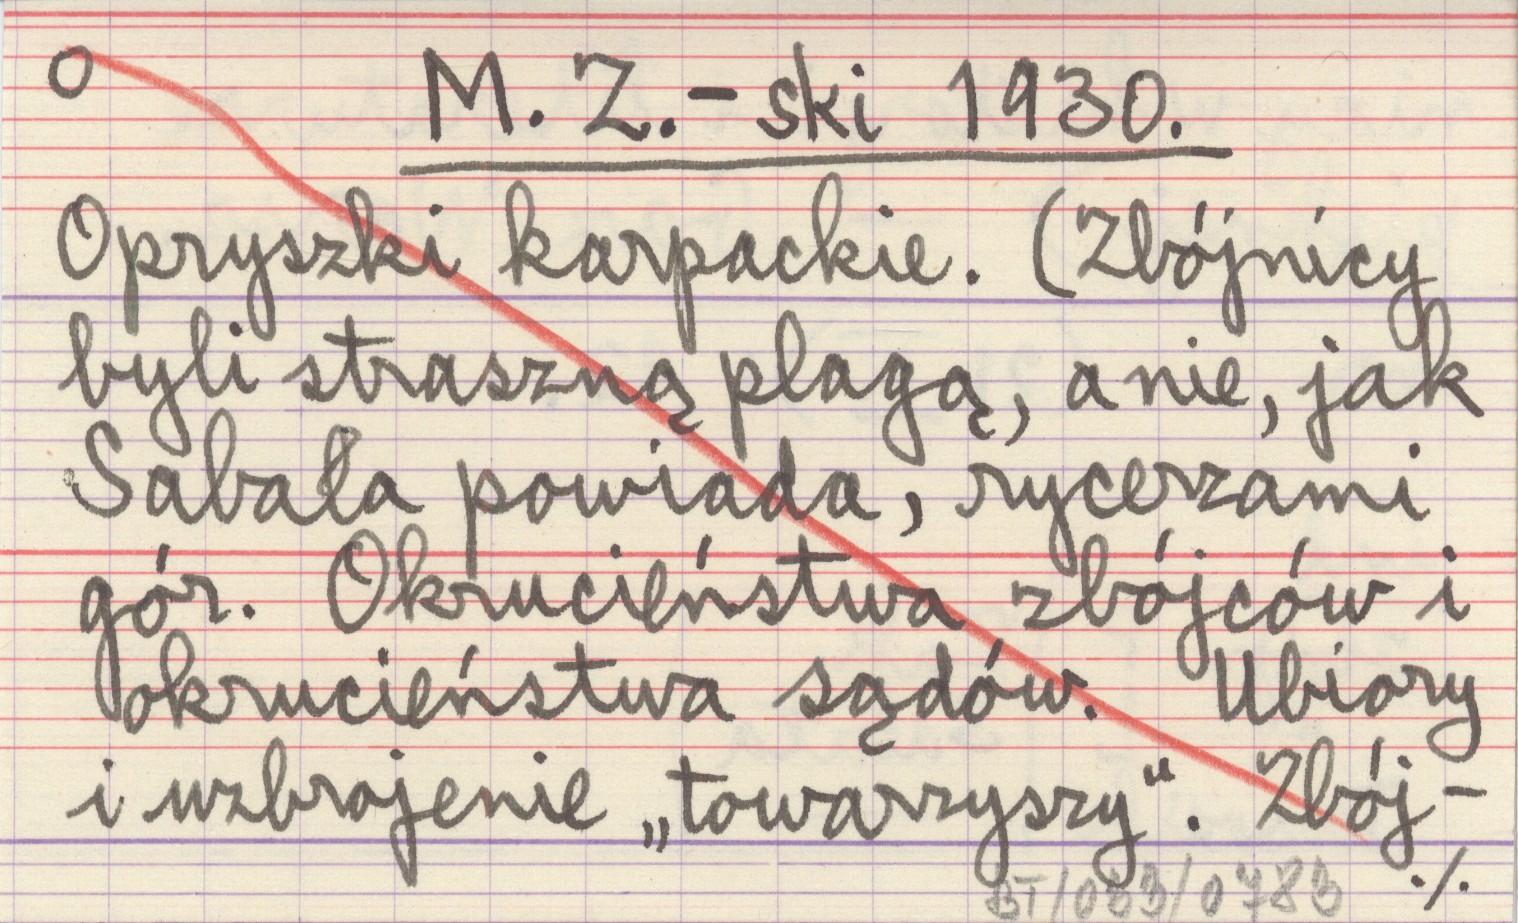 O M. Z. - ski 1930.
Opryszki karpackie. (Zbójnicy
byli straszną plagą, a nie, jak
Sabała powiada, rycerzami
gór. Okrucieństwa zbójców i
okrucieństwa sądów. Ubiory
i uzbrojenie „towarzyszy“. Zbój-
./.
BT/033/0783